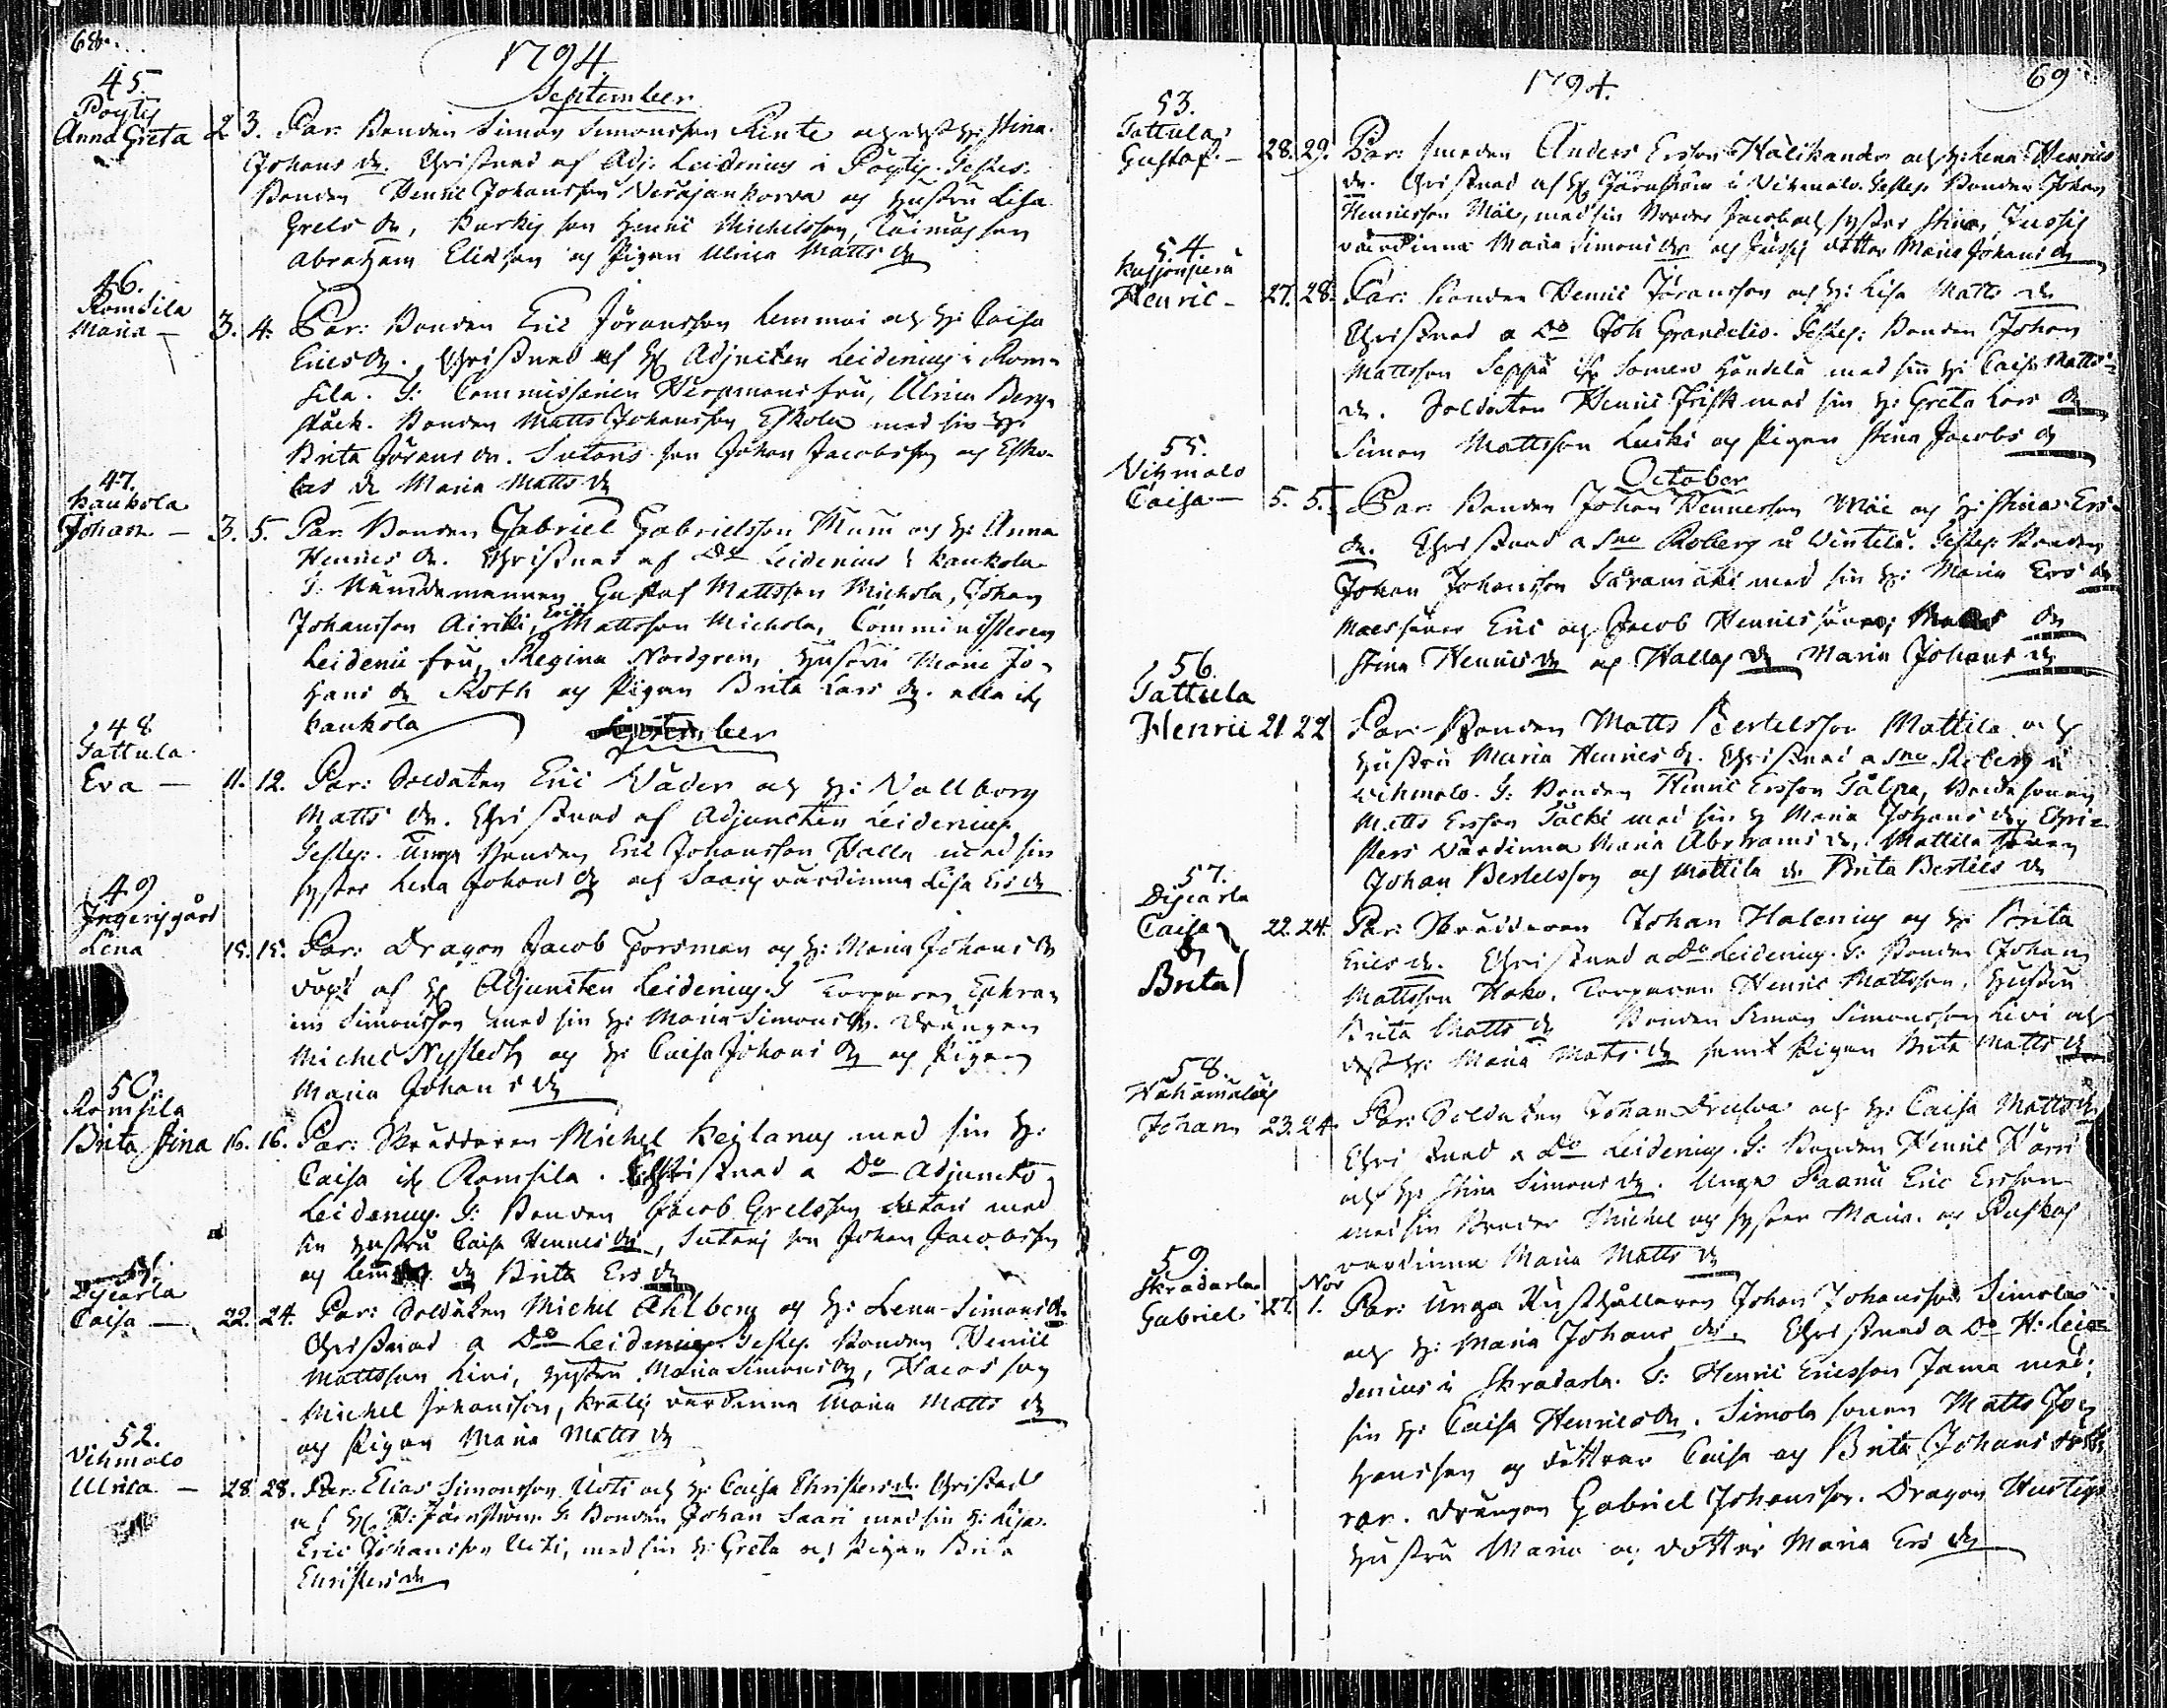 68.
1794.
September
45.
Pöytis
Anna Greta 2. 3. Par: Bonden Simon Simonsson och dess H: Stina
Johans dr. Christnad af Adj: Leidenius i Pöytis. Testes:
Bonden Henric Johansson och Hustru Lisa
Grels dr, son Henric Michelsson, son
Abraham Eliasson och Pigan Ulrica Matts dr
46.
Romsila
Maria — 3. 4. Par: Bonden Eric Jöransson Lemmoi och H: Caisa
Erics dr. Christnad af H Adjuncten Leidenius i Rom-
sila. T: Commissarien fru, Ulrica Berg-
Bonden Matts Johansson Eskola med sin H:
Brita Jörans dr. Sutaris son Johan Jacobsson och Esko-
las dr Maria Matts dr
47.
Haukola
Johan — 3. 5. Par: Bonden Gabriel Gabrielsson Mumi och H: Anna
Henrics dr. Christnad af Do Leidenius i Haukola
T: Nämdemannen Gustaf Mattsson Michola, Johan
Johansson Airikki, Eric Mattsson Michola, Comministeren
Leidenii fru, Regina Nordgren, Hustru Maria Jo-
hans dr Roth och Pigan Brita Lars dr. alla ifr
Haukola
September
48
Tattula
Eva — 11. 12. Par: Soldaten Eric Väder och H: Vallborg
Matts dr. Christnad af Adjuncten Leidenius.
Testes: Unga Bonden Eric Johansson Halla med sin
syster Lena Johans dr och Saaris värdinna Lisa Ers dr
49
Ingerisgård
Lena 15. 15. Par: Dragon Jacob Forsman och H: Maria Johans dr
döpt af H Adjuncten Leidenius. T Torparen Ephra-
im Simonsson med sin H: Maria Simons dr. Drängen
Michel Nystedt och H: Caisa Johans dr och Pigan
Maria Johans dr
50.
Romsila
Brita Stina 16. 16. Par: Skräddaren Michel Heilanus med sin H:
Caisa ifr Romsila. Christnad a Do Adjuncto
Leidenius. T: Bonden Jacob Grelsson Sutari med
sin Hustru Caisa Henrics dr, Sutaris son Johan Jacobsson
och dr Brita Ers dr
51.
Dijcarla
Caisa — 22. 24. Par: Soldaten Michel Ahlberg och H: Lena Simons dr.
Christnad a Do Leidenius. Testes. Bonden Henric
Mattsson Kivi, hustru Maria Simons dr, Hacos son
Michel Johansson, värdinna Maria Matts dr
och Pigan Maria Matts dr
52.
Vihmalo
Ulrica — 28. 28. Par: Elias Simonsson Uoti och H: Caisa Christers dr Christnad
af H H: Järnström. T: Bonden Johan Saari med sin H: Lisa.
Eric Johansson Uoti, med sin H: Greta och Pigan Brita
Christers dr
1794.
69
53.
Tattula
Gustaf. — 28. 29. Par: Smeden Anders Ersson Hälikander och H: Lena Henrics
dr. Christnad af H Järnström i Vihmalo. Testes Bonden Johan
Henricsson Mäe, med sin Broder Jacob och syster Stina, Jussis
värdinna Maria Simons dr och Jussis dotter Maria Johans dr
54.
Henric — 27. 28. Par: Bonden Henric Jöransson och H: Lisa Matts dr
Christnad a Do Joh Grandelio. Testes: Bonden Johan
Mattsson Seppä ifr Somero Händelä med sin H: Caisa Matts
dr. Soldaten Henric Frisk med sin H: Greta Lars dr
Simon Mattsson Luki och Pigan Stina Jacobs dr
October
55.
Vihmalo
Caisa — 5. 5. Par: Bonden Johan Henricsson Mäe och H: Stina Ers
dr. Christnad a Dno Roberg i Wintelä. Testes Bonden
Johan Johansson Saramäki med sin H: Maria Ers dr
Maes söner Eric och Jacob Henricssöner, dr
Stina Henrics dr och Hallas dr Maria Johans dr
56.
Tattula
Henric 21 22 Par: Bonden Matts Bertelsson Mattila och
hustru Maria Henrics dr. Christnad a Dno Roberg i
Wihmalo. T: Bonden Henric Ersson Tälpa, Bondesonen
Matts Ersson Täcki med sin H Maria Johans dr, Chri-
sters värdinna Maria Abrahams dr, Mattila sonen
Johan Bertelsson och Mattila dr Brita Bertels dr
57.
Dijcarla
Caisa
&
Brita 22. 24. Par: Skräddaren Johan Halenius och H: Brita
Erics dr. Christnad a Do Leidenius. T: Bonden Johan
Mattsson Hako. Torparen Henric Mattsson, hustru
Brita Matts dr Bonden Simon Simonsson Kivi och
dess H: Maria Matts dr samt Pigan Brita Matts dr
58.
Johan 23. 24. Par: Soldaten Johan och H: Caisa Matts dr
Christnad a Do Leidenius. T: Bonden Henric Härri
och H: Stina Simons dr. Unga Paanu Eric Ersson
med sin Broder Michel och syster Maria. och
värdinna Maria Matts dr
59.
Skradarla
Gabriel 27. Nov 1. Par: Unga Rusthållaren Johan Johansson Simola
och H: Maria Johans dr. Christnad a Do H: Lei-
denius i Skradarla. T: Henric Ericsson Jama med
sin H: Caisa Henrics dr. Simola sonen Matts Jo-
hansson och döttrar Caisa och Brita Johans dött-
rar. Drängen Gabriel Johansson. Dragon
Hustru Maria och dotter Maria Ers dr